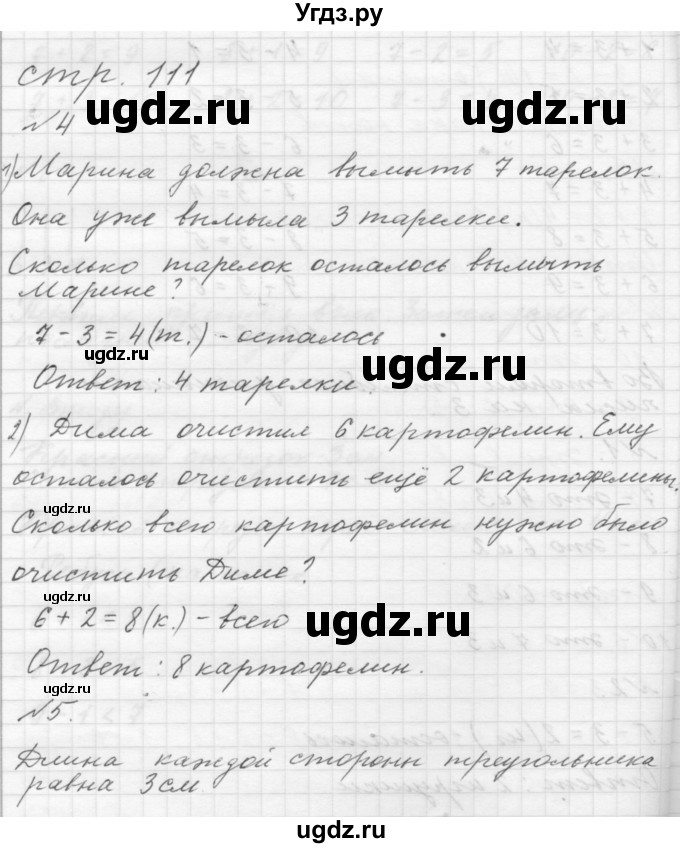 Угдз.ру
стр. 111
№4
1) Марина должна вымыть 7 тарелок.
Она уже вымыла 3 тарелки.
Сколько тарелок осталось вымыть
Марине?
7 - 3 = 4 (т.) - осталось
Ответ: 4 тарелки.
2) Дима очистил 6 картофелин. Ему
осталось очистить ещё 2 картофелины.
Сколько всего картофелин нужно было
очистить Диме?
6 + 2 = 8 (к.) - всего
Ответ: 8 картофелин.
№5.
Длина каждой стороны треугольника
равна 3 см.
ugdz.ru
ugdz.ru
ugdz.ru
ugdz.ru
ugdz.ru
ugdz.ru
ugdz.ru
ugdz.ru
ugdz.ru
ugdz.ru